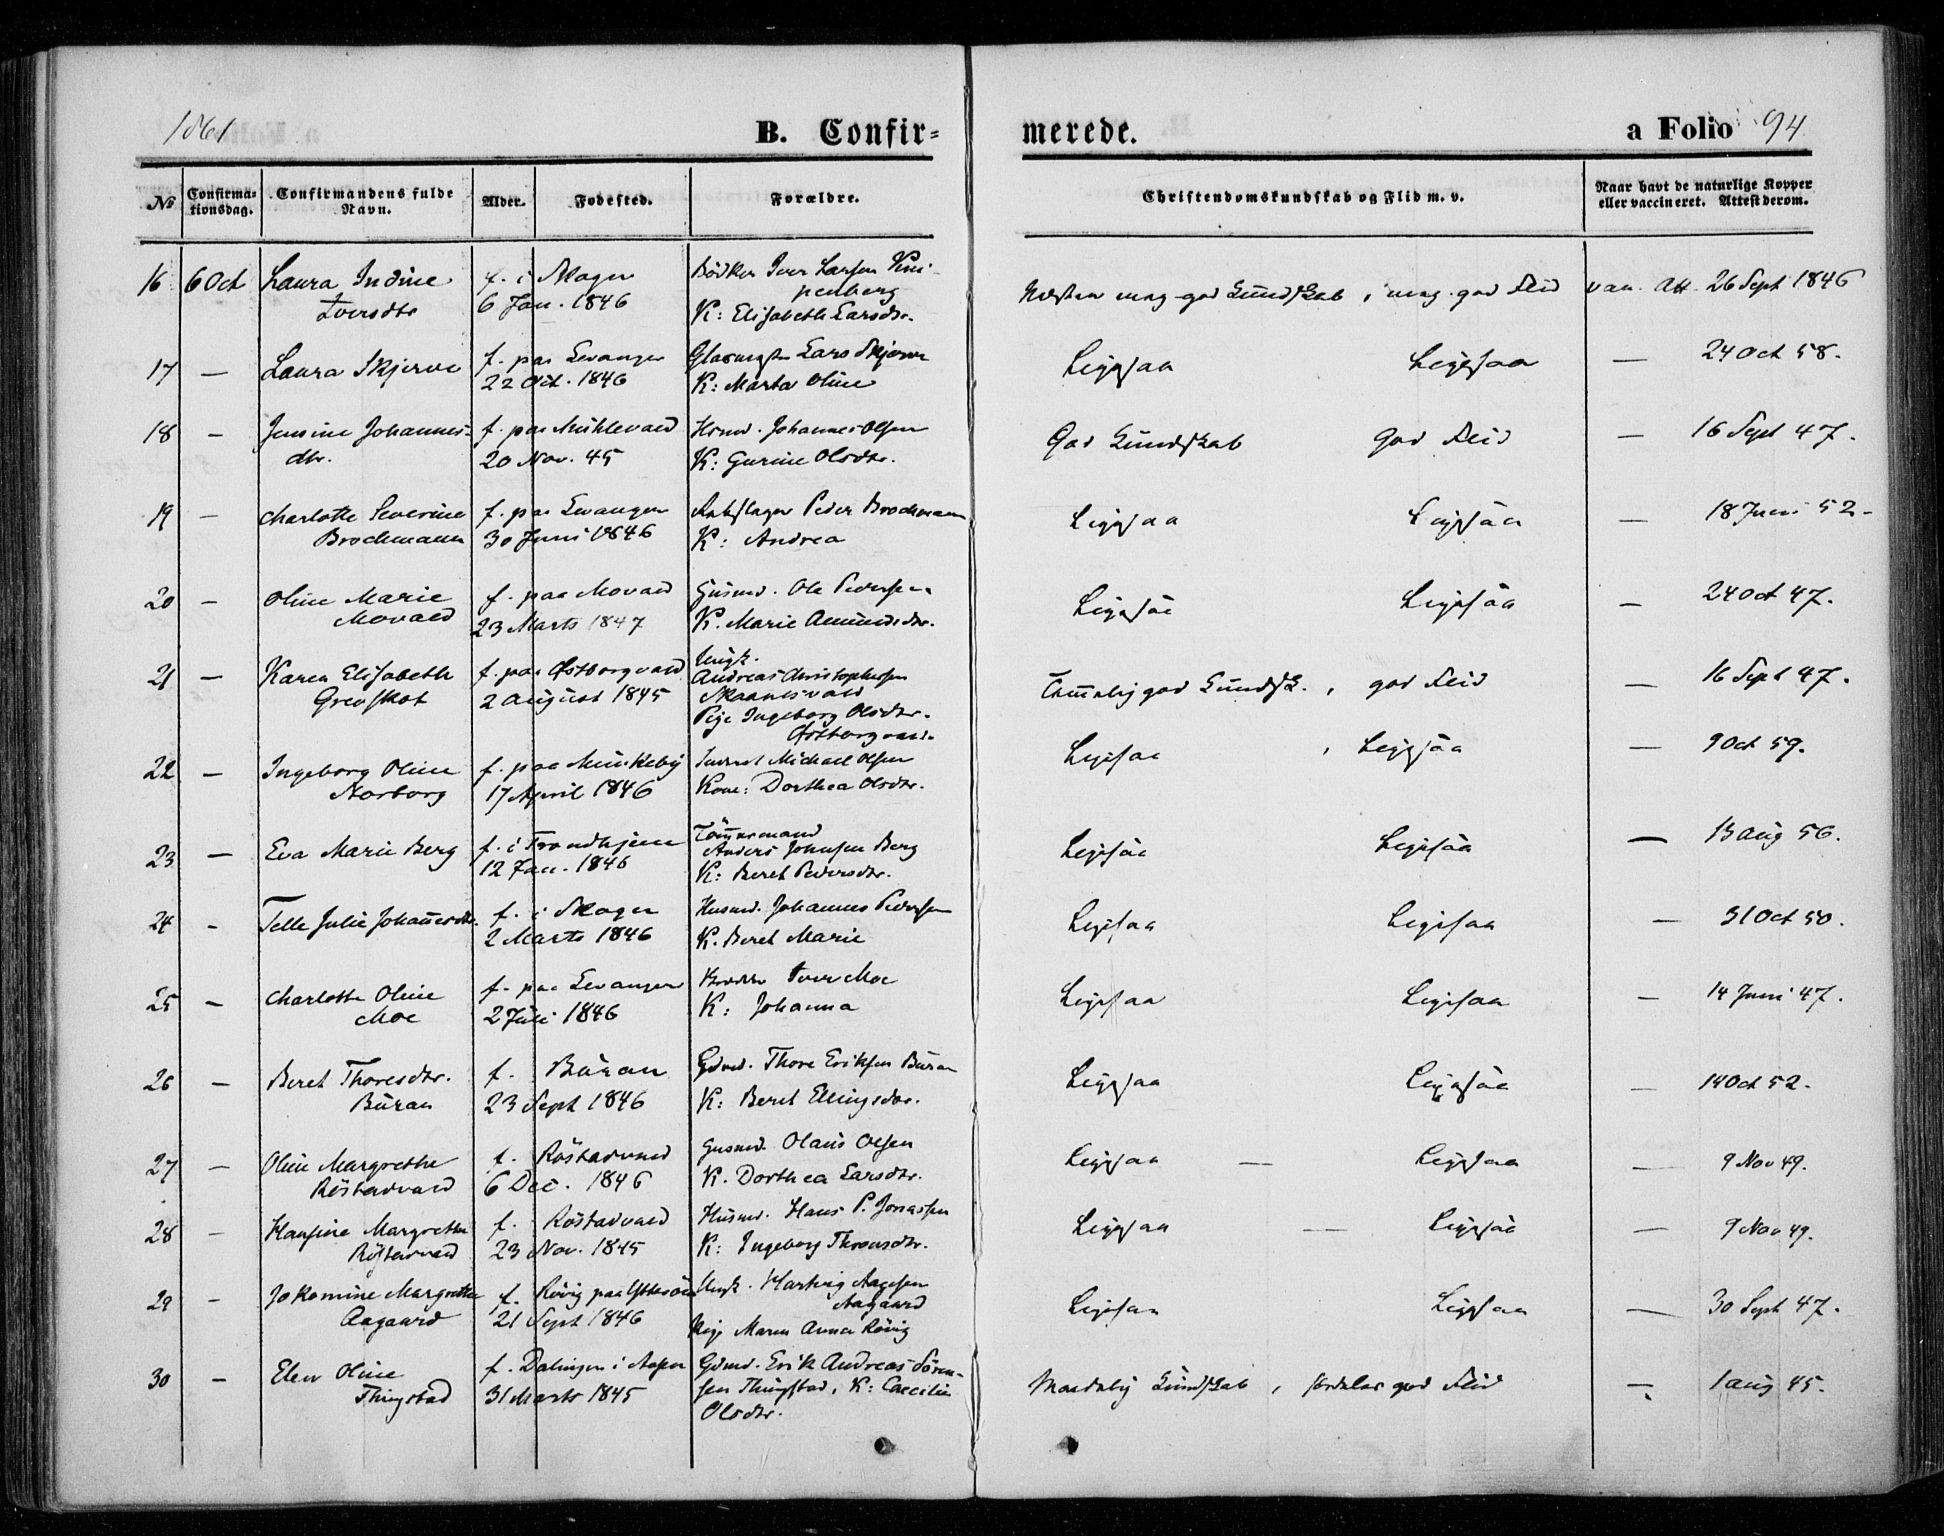 1861
B. Confir=
merede.
a Folio 94
No
Confirma=
tionsdag.
Confirmandens fulde
Navn.
Alder.
Fodested.
Forældre.
Christendomskundskab og Flid m. v.
Naar havt de naturlige Kopper
eller vaccineret. Attest derom.
16 6 Oct Laura Indine f. i Skogn Bödker Iver Larsen
Iversdtr 6 Jan. 1846
K: Elisabeth Larsdtr.
Næsten meg. god Kundskab, meg. god Flid vac. Att. 26 Sept 1846
17 — Laura Skjerve f. paa Levanger Lars Skjerve
22 Oct. 1846 K: Marta Oline
Ligesaa Ligesaa — 24 Oct 58.
18 — Jensine Johannes- f. paa Husmd. Johannes Olsen
dtr. 20 Nov. 45 K: Gurine Olsdtr.
God Kundskab God Flid — 16 Sept 47.
19 — Charlotte Severine f. paa Levanger Rebslager Peder Brochmann
Brochmann 30 Juni 1846 K: Andrea
Ligesaa Ligesaa — 18 Juni 52-
20 — Oline Marie f. paa Movald Husmd. Ole Pedersen
Movald 23 Marts 1847 K. Marie Amundsdtr.
Ligesaa Ligesaa — 24 Oct 47.
21 — Karen Elisabeth f. paa Østborgvald Ungk.
Grevskot 2 August 1845 Andreas Christophersen
Skaanesvald
Pige Ingeborg Olsdtr.
Østborgvald.
Temmelig god Kundsk., god Flid — 16 Sept 47.
22 — Ingeborg Oline f. paa Munkeby Michael Olsen
Norborg 17 April 1846 Kone: Dorthea Olsdtr.
Ligesaa , Ligesaa — 9 Oct 59.
23 — Eva Marie Berg f. i Trondhjem Tömmermand
12 Jan. 1846 Anders Johnsen Berg
K: Beret Pedersdtr.
Ligesaa Ligesaa — 13 Aug 56.
24 - Telle Julie Johannesdtr. f. i Skogn Husmd. Johannes Pedersen
2 Marts 1846 K. Beret Marie
Ligesaa Ligesaa — 31 Oct 50.
25 — Charlotte Oline f. paa Levanger Iver Moe
Moe 2 Juli 1846 K: Johanna
Ligesaa Ligesaa — 14 Juni 47.
26 — Beret Thoresdtr. f. Buran Gdmd. Thore Eriksen Buran
Buran 23 Sept 1846 K: Beret Ellingsdtr.
Ligesaa Ligesaa — 14 Oct 52.
27 — Oline Margrethe f. Röstadvald Husmd. Olaus Olsen
Röstadvald 6 Dec. 1846 K. Dorthea Larsdtr.
Ligesaa — Ligesaa — 9 Nov 49.
28 — Hansine Margrethe f. Röstadvald Husmd. Hans P. Jonassen
Röstadvald 23 Nov. 1845 K: Ingeborg Thronsdtr.
Ligesaa — Ligesaa — 9 Nov 49.
29 - Jokomine Margrethe f. Rövig paa Ytterøen Ungk. Hartvig Aagesen
Aagaard 21 Sept 1846 Aagaard
Pige Maren Anna Rövig
Ligesaa Ligesaa — 30 Sept 47.
30 - Elen Oline f. Dalingen i Aasen Gdmd. Erik Andreas Sören-
Thingstad 31 Marts 1845 sen Thingstad, K: Caecilie
Olsdtr.
Maadelig Kundskab, god Flid — 1 Aug 45.